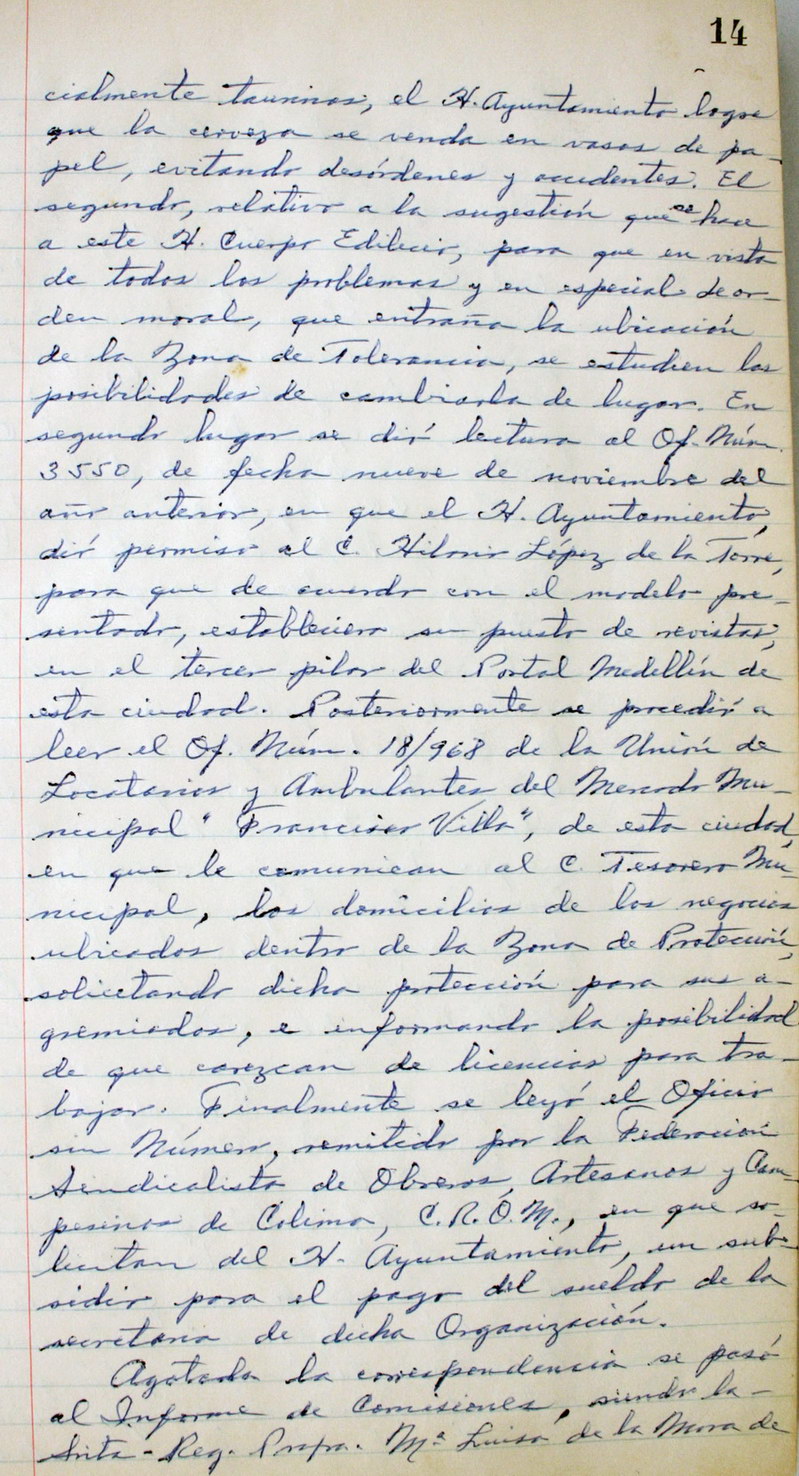 14
cialmente taurinas, el H. Ayuntamiento logre
que la cerveza se venda en vasos de pa-
pel, evitando desórdenes y accidentes. El
segundo, relativo a la sugestión que se hace
a este H. Cuerpo Edilicio, para que en vista
de todos los problemas y en especial de or-
den moral, que entraña la ubicación
de la Zona de Tolerancia, se estudien las
posibilidades de cambiarla de lugar. En
segundo lugar se dió lectura al Of. Núm.
3550, de fecha nueve de noviembre del
año anterior, en que el H. Ayuntamiento,
dió permiso al C. Hilario López de la Torre,
para que de acuerdo con el modelo pre-
sentado, estableciera su puesto de revistas,
en el tercer pilar del Portal Medellín de
esta ciudad. Posteriormente se procedió a
leer el Of. Núm. 18/968 de la Unión de
Locatarios y Ambulantes del Mercado Mu-
nicipal "Francisco Villa", de esta ciudad,
en que le comunican al C. Tesorero Mu-
nicipal, los domicilios de los negocios
ubicados dentro de la Zona de Protección,
solicitando dicha protección para sus a-
gremiados, e informando la posibilidad
de que carezcan de licencias para tra-
bajar. Finalmente se leyó el Oficio
sin Número, remitido por la Federación
Sindicalista de Obreros, Artesanos y Cam-
pesinos de Colima, C.R.O.M., en que so-
licitan del H. Ayuntamiento, un sub-
sidio para el pago del sueldo de la
secretaria de dicha Organización.
Agotada la correspondencia se pasó
al Informe de Comisiones, siendo la-
Srita-Reg. Propa. Mª Luisa de la Mora de